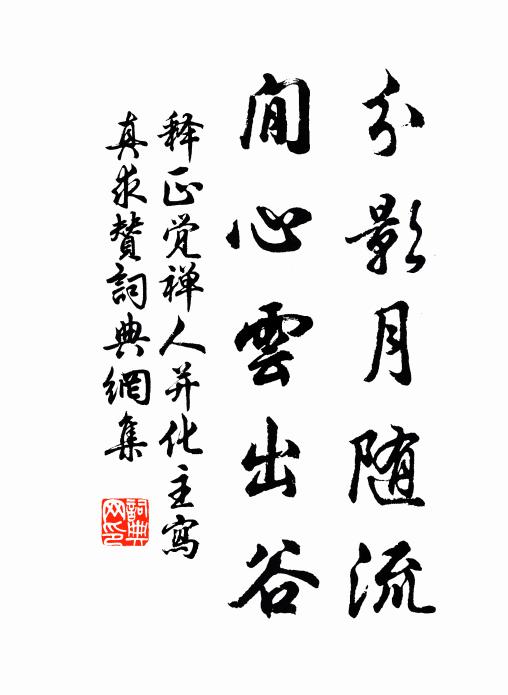 分影月随流
閒心雲出谷
释正觉禅人并化主寫
真求赞詞典網集
詞典网印